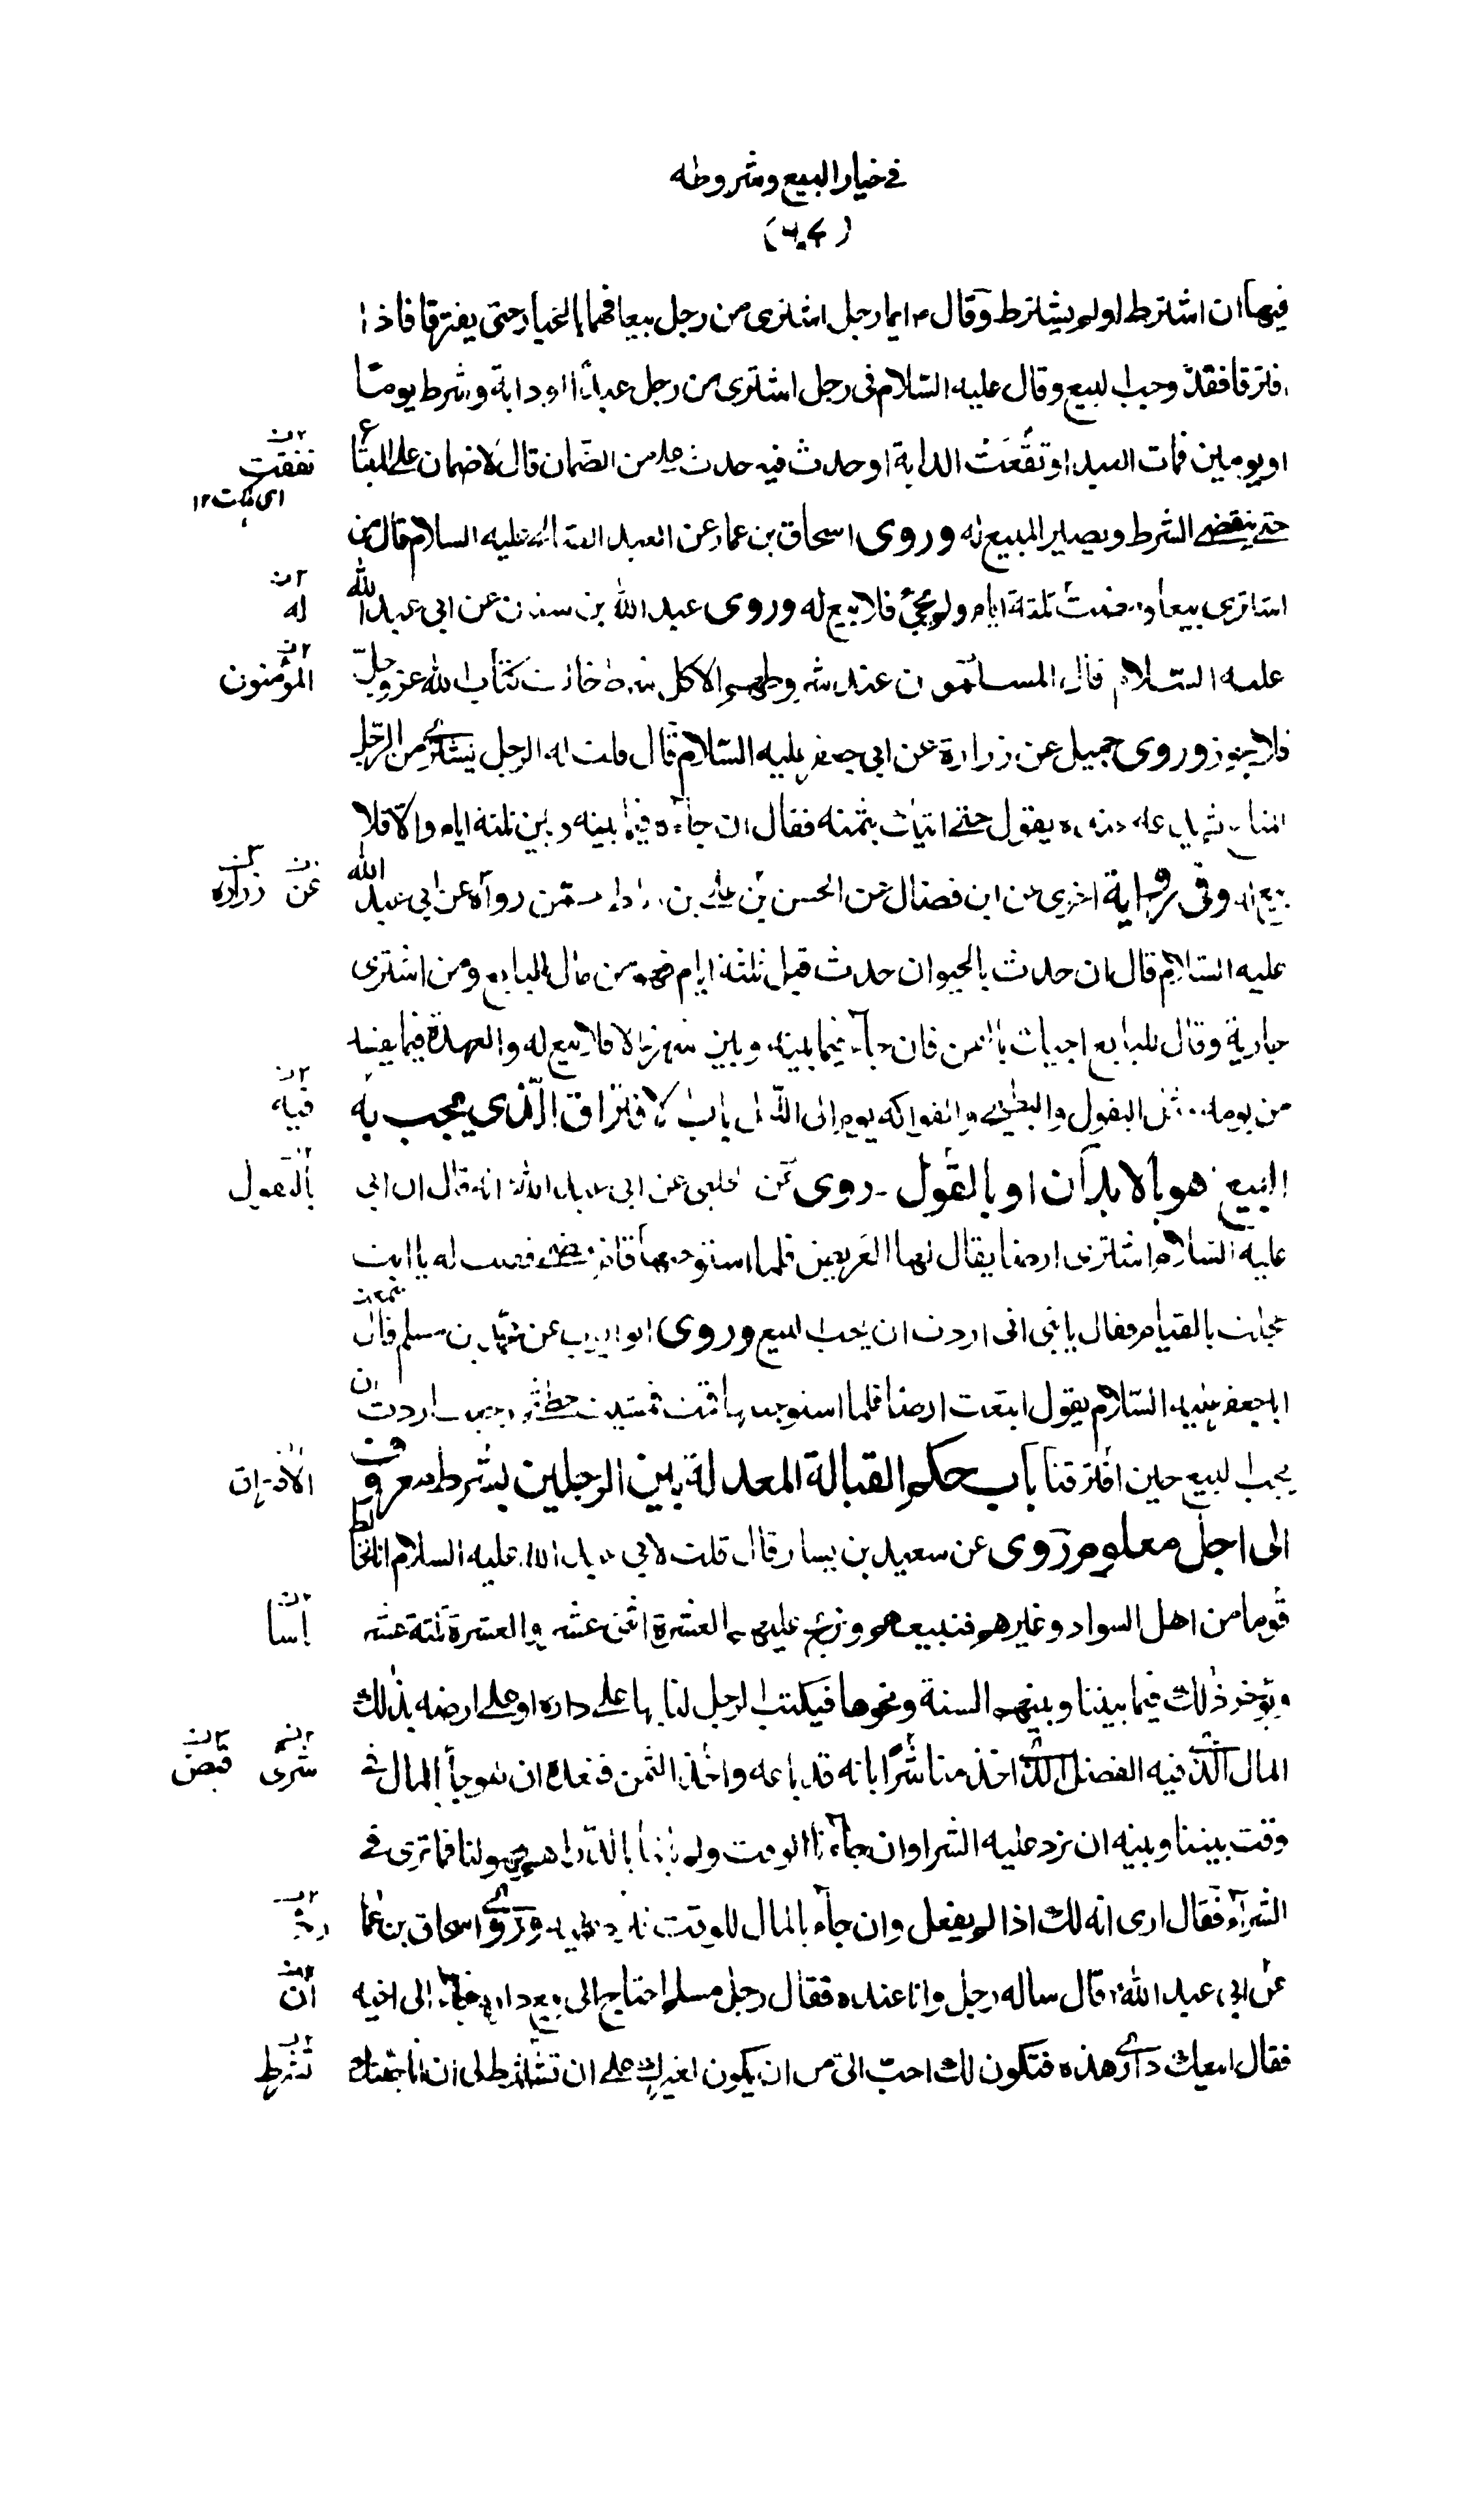 في خيار البيع وشروطه
(٦٠٤)
فيها ان اشترط او لم يشترط وقال ع ايما رجل اشترى من رجل بيعا فهما بالخيار حتى يفترقا فاذا
افترقا فقد وجب البيع وقال عليه السلام في رجل اشترى من رجل عبدا او دابة وشرط يوما
او يومين فمات العبد او نفقت الدابة او حدث فيه حدث على من الضمان قال لا ضمان على المبتاع
نفقت
اى ماتت ١٢
حتى ينقضي الشرط ويصير المبيع له وروى اسحاق بن عمار عن العبد الصالح عليه السلام قال من
اشترى بيعا ومضت ثلثة ايام ولم يجئ فلا بيع له وروى عبد الله بن سنان عن ابي عبد الله
له
عليه السلام قال المسلمون عند شروطهم الا كل شرط خالف كتاب الله عز وجل
المؤمنون
فلا يجوز وروى جميل عن زرارة عن ابي جعفر عليه السلام قال قلت له الرجل يشترى من الرجل
المتاع ثم يدعه عنده يقول حتى اتيك بثمنه فقال ان جاءه فيما بينه وبين ثلثة ايام والا فلا
بيع له وفي رواية اخرى عن ابن فضال عن الحسن بن علي بن رباط عمن رواه عن ابي عبد الله
عن زرارة
عليه السلام قال ان حدث بالحيوان حدث قبل ثلثة ايام فهو من مال البايع ومن اشترى
جارية وقال للبايع اجيئك بالثمن فان جاء فيما بينه وبين شهر والا فلا بيع له والعهدة فيما يفسد
من يومه مثل البقول والبطيخ والفواكه يوم الى الليل باب الافتراق الذي يجب به
فيه
البيع هو بالابدان او بالقول روى عن الحلبي عن ابي عبد الله ع انه قال ان ابي
بالقول
عليه السلام اشترى ارضا يقال لها العريض فلما استوجبها قام فمضى فقلت له يا ابت
عجلت بالقيام فقال يا بني اني اردت ان يجب البيع وروى ابو ايوب عن محمد بن مسلم قال سمعت
ابا جعفر عليه السلام يقول ابتعت ارضا فلما استوجبتها قمت فمشيت خطى ثم رجعت اردت ان
يجب البيع حين افترقنا باب حكم القبالة المعدلة بين الرجلين بشرط معروف
الافتراق
الى اجل معلوم روى عن سعيد بن يسار قال قلت لابي عبد الله عليه السلام انا نخالط
قوما من اهل السواد وغيرهم فنبيعهم ونربح عليهم العشرة اثنى عشر والعشرة ثلثة عشر
اناسا
ونوخر ذلك فيما بيننا وبينهم السنة ونحوها فيكتب الرجل لنا بها على داره او على ارضه بذلك
المال الذي فيه الفضل الذي اخذ منا شرا بانه قد باعه واخذ الثمن فنعده ان هو جاء بالمال في
شرى قبض
وقت بيننا وبينه ان نرد عليه الشرا وان جاءنا الوقت ولم ياتنا بالدراهم فهو لنا فما ترى في
الشراء فقال ارى انه لك اذا لم يفعل وان جاء بالمال للوقت فرد عليه وروى اسحاق بن عمار
عن ابي عبد الله ع قال ساله رجل وانا عنده فقال رجل مسلم احتاج الى بيع داره فجاء الى اخيه
ان
فقال ابيعك داري هذه فتكون لك احب الي من ان يكون لغيرك على ان تشترط لي ان انا جئتك
تشرط